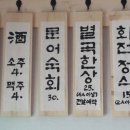 酒
소주 4.
맥주 4.
문어숙회
30.
별곡한상
25.
(4人이상)
전날예약
회전정식
15.
(2人이상)